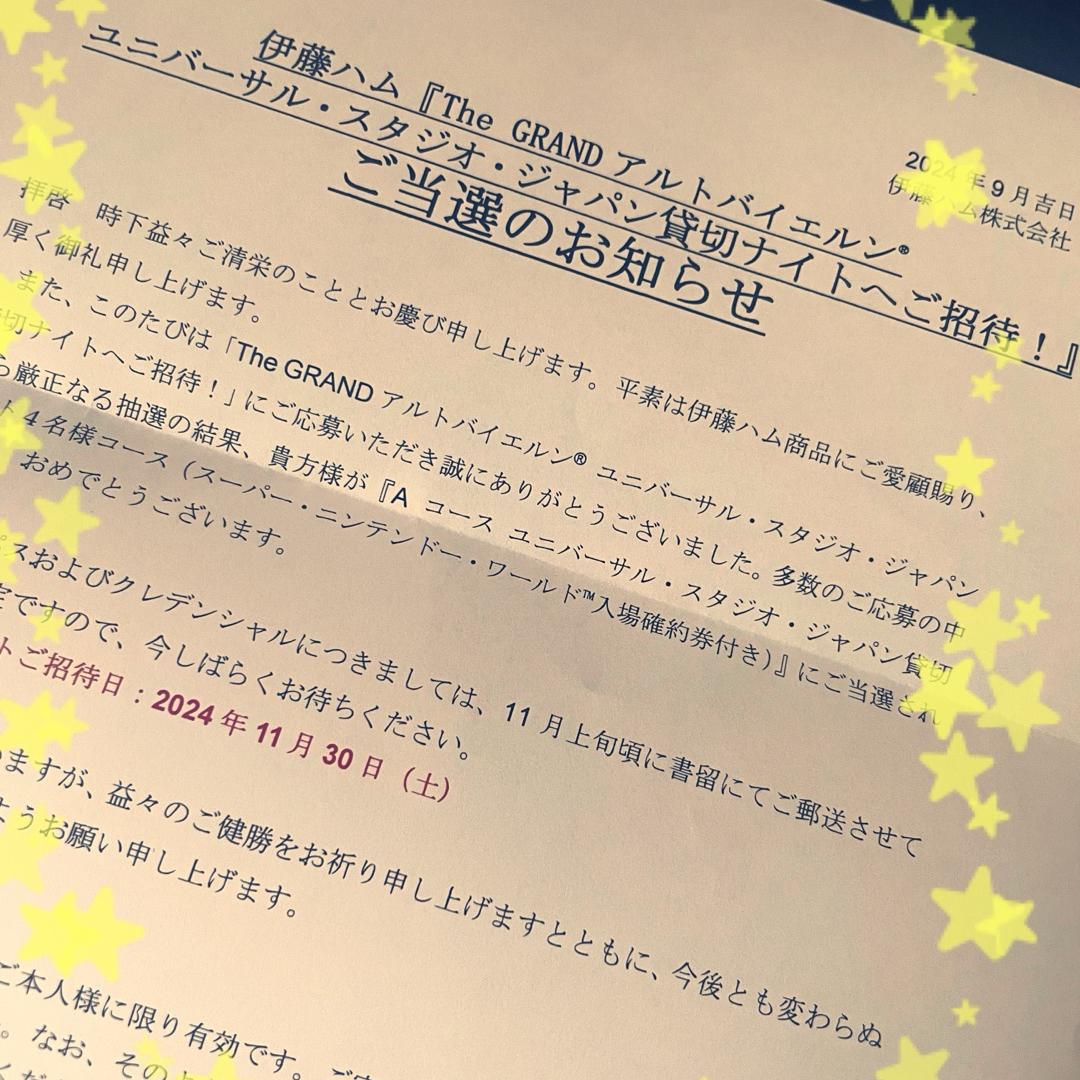 2024年9月吉日
伊藤ハム株式会社
伊藤ハム『The GRAND アルトバイエルン®
ユニバーサル・スタジオ・ジャパン貸切ナイトへご招待！』
ご当選のお知らせ
拝啓　時下益々ご清栄のこととお慶び申し上げます。平素は伊藤ハム商品にご愛顧賜り、
厚く御礼申し上げます。
また、このたびは「The GRAND アルトバイエルン® ユニバーサル・スタジオ・ジャパン
切ナイトへご招待！」にご応募いただき誠にありがとうございました。多数のご応募の中
ら厳正なる抽選の結果、貴方様が『A コース ユニバーサル・スタジオ・ジャパン貸切
ト４名様コース（スーパー・ニンテンドー・ワールド™入場確約券付き）』にご当選され
おめでとうございます。
スおよびクレデンシャルにつきましては、11 月上旬頃に書留にてご郵送させて
定ですので、今しばらくお待ちください。
トご招待日：2024 年 11 月 30 日（土）
ますが、益々のご健勝をお祈り申し上げますとともに、今後とも変わらぬ
ようお願い申し上げます。
ご本人様に限り有効です。
。なお、その